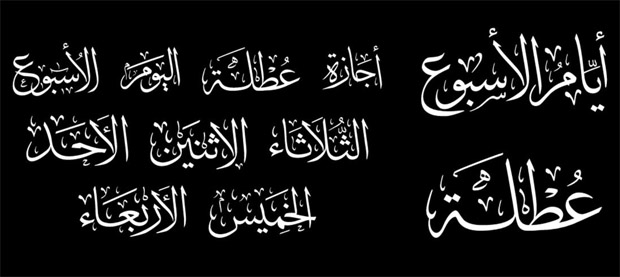 أيَّام الأسبوع
عُطْلَة
أجازة عُطْلَة اليَوم الأُسْبُوع
الثُّلَاثَاء الاِثْنَيْن الأَحَد
الخَمِيْس الأَرْبِعَاء